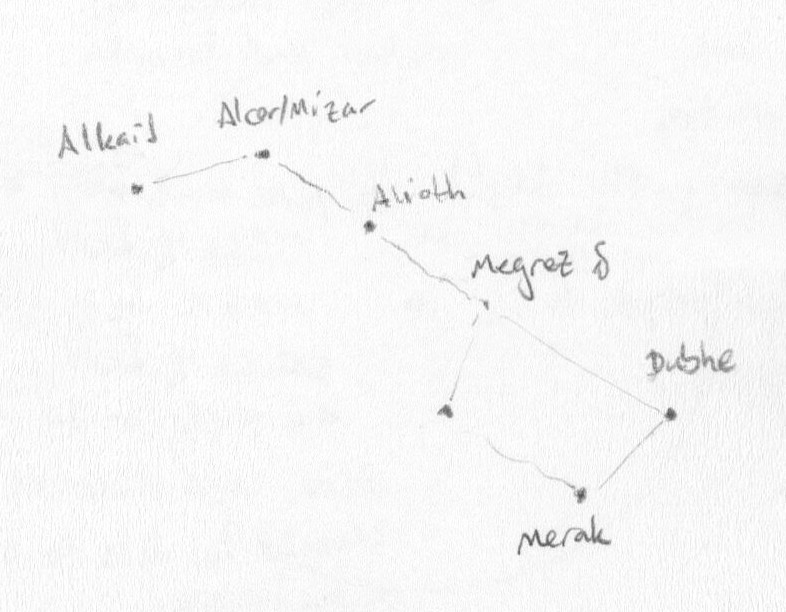 Alkaid
Alcor/Mizar
Alioth
Megrez δ
Dubhe
Merak